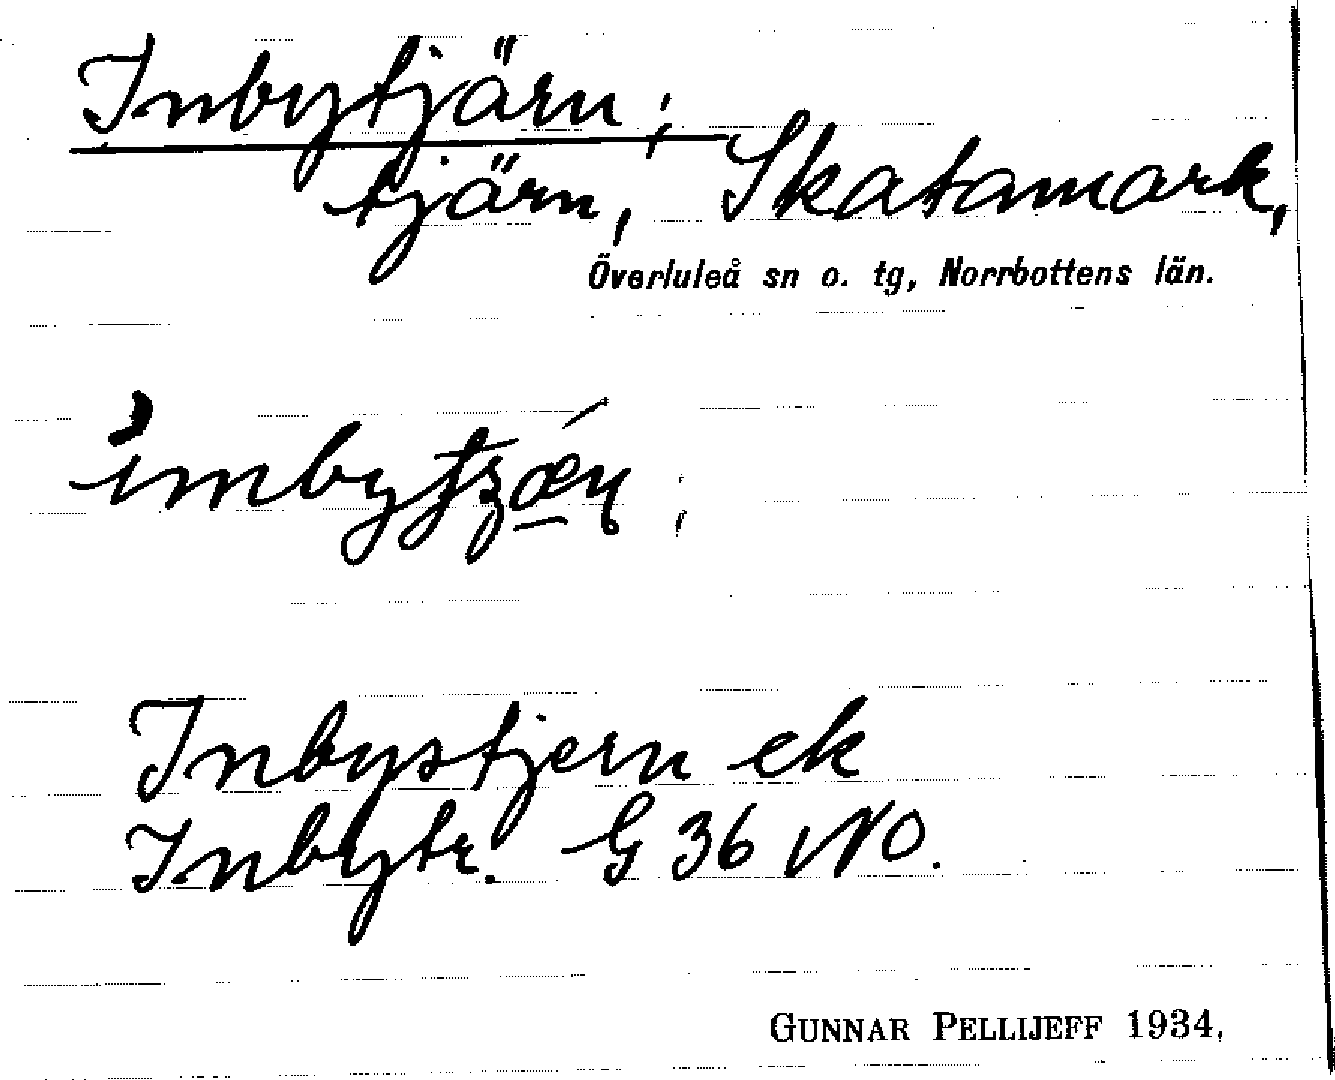 Inbytjärn;
tjärn, Skatamark,
Överluleå sn o. tg, Norrbottens län.
Inbystjern ek
Inbytr. G 36 NO.
GUNNAR PELLIJEFF 1934,